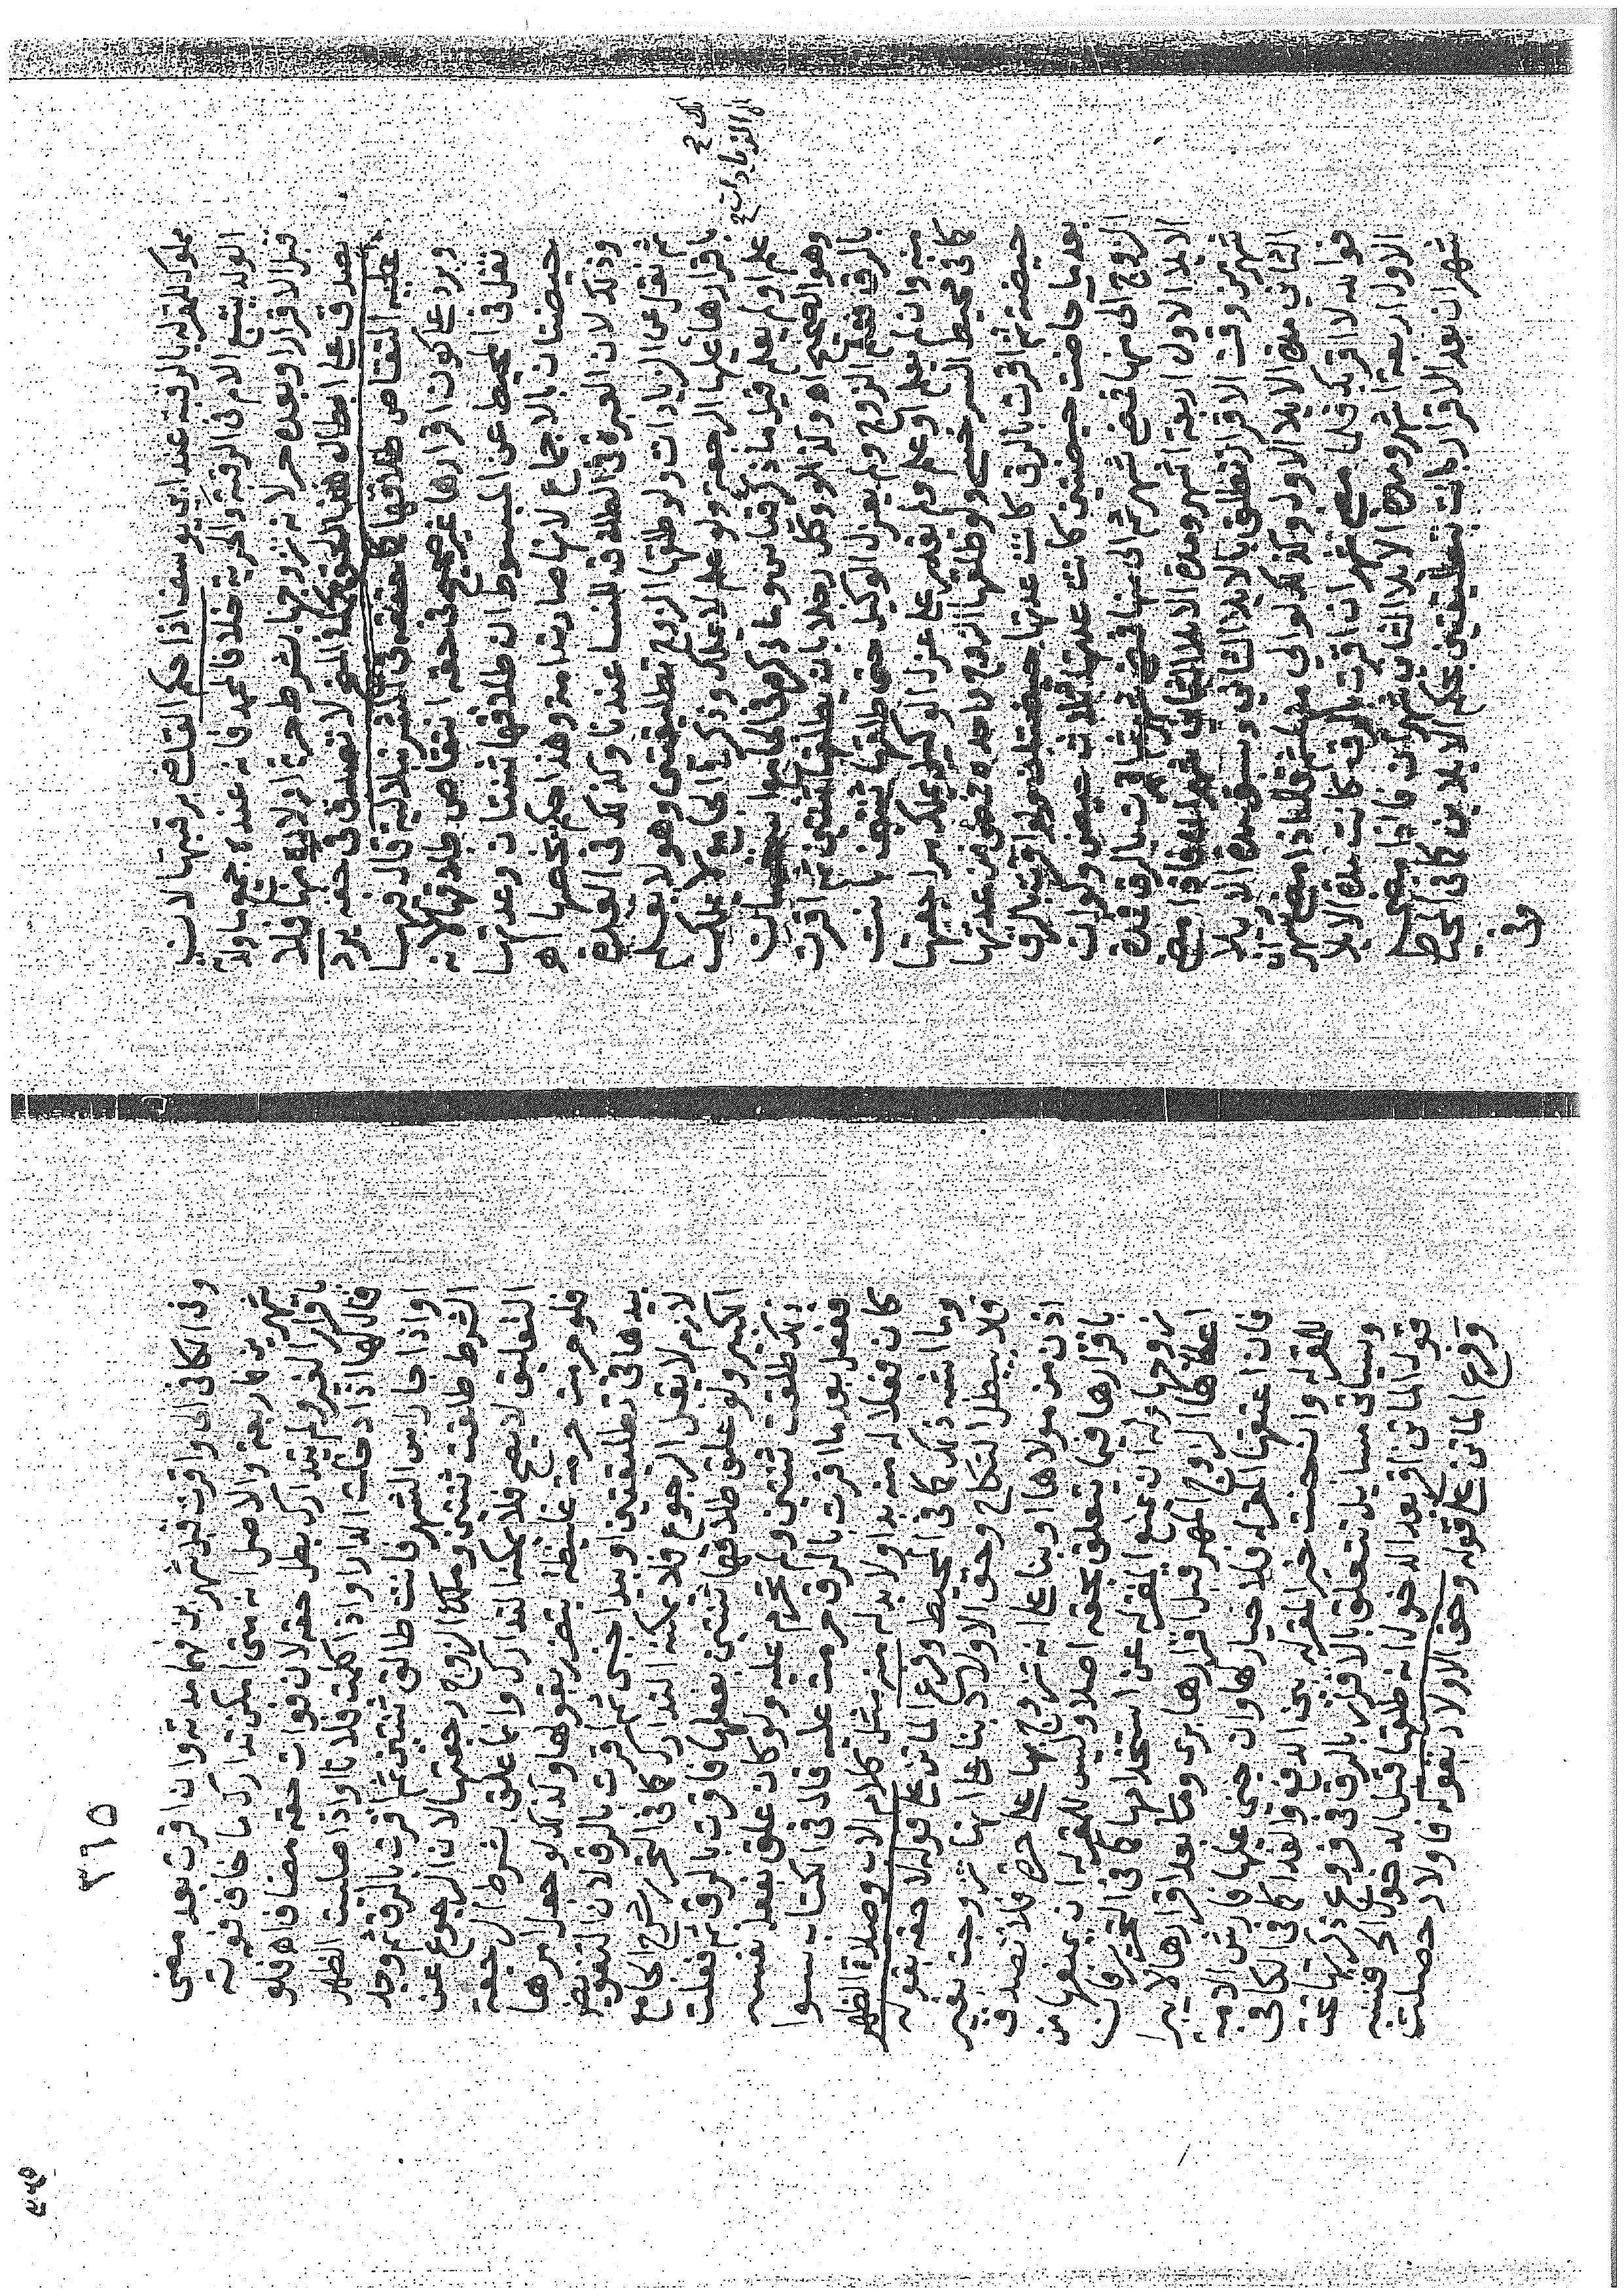 مملوك للمقر له بالرقبة عند ابي يوسف اذا حكم القاضي برقبتها لان
الولد يتبع الام في الرقبة والحرية خلافا لمحمد فانه عنده جميع ما ولد
قبل الاقرار او بعده حر لانه تزوجها بشرط حرية اولاده منها فلا
يصدق على ابطال هذا الحق لا تصدق في حقه يرد
عليه انتقاص طلاقها كما حققه في الشرنبلالية قال فيها
ويرد على كون اقرارها غير صحيح في حقه انتقاص طلاقها لانه
نقل في المحيط عن المبسوط ان طلاقها ثنتان وعدتها
حيضتان بالاجماع لانها صارت امة وهذا حكم يخصها اه
وذلك لان العبرة في الطلاق للنسا عندنا وكذلك في العدة
ثم نقل عن الزيادات ولو طلقها الزوج تطليقتين وهو لا يعلم
باقرارها عليها الرجعة ولو علم لا يملك وذكر في الجامع لا يملك
علم او لم يعلم قيل ما ذكر قياس وما ذكره في الجامع استحسان
وهو الصحيح اه وكذا لو وكل رجلا بان يطلقها ثنتين ثم اقرت
بالرق فعلم الزوج ولم يعزل الوكيل حتى طلقها ثنتين بانت
منه وان لم يعلم او علم ولم يقدر على عزل الوكيل يملك مراجعتها
كما في محيط السرخسي ولو طلقها الزوج واحدة فمضى من عدتها
حيضة ثم اقرت بالرق كانت عدتها حيضتان ولو اقرت بالرق
بعد ما حاضت حيضتين كانت عدتها ثلاث حيض ولو الى
الزوج الى منها فمضى شهر ثم اقرت بالرق فمدة
الايلا الاول اربعة اشهر ومدة الايلا الثاني شهران فاذا مضى
شهران من وقت الاقرار تطلق بالايلا الثاني وسبق مدة الايلا
الثاني مدة الايلا الاول وكذلك لو الى
فوالله لا اقربك فلما مضى شهران اقرت بالرق كانت مدة الايلا
الاول اربعة اشهر ومدة الايلا الثاني شهران فاذا مضى
شهران بعد الاقرار بانت بتطليقتين بحكم الايلاين كما في المحيط
وفي

٣٦٥
وفي الكافي الى واقرت قبل شهرين فهما مدته وان اقرت بعد مضي
شهرين فاربعة والاصل انه متى امكن تدارك ما خاف فوته
باقرار الغير ولم يتدارك بطل حقه لان فوات حقه مضاف اليه فلو
قال لها اذا دخلت الدار او اذا كلمت فلانا او اذا صليت الظهر
او اذا جا راس الشهر فانت طالق ثنتين ثم اقرت بالرق ثم وجد
الشرط طلقت ثنتين وملك الزوج رجعتها لان الرجوع عن
التعليق لا يصح فلا يمكنه التدارك وانما علق بشرط الرجعة
فلو حرمت حرمة غليظة يتضرر بقولها وكذلك لو جعل امرها
بيدها في تطليقتين او بيد اجنبي ثم اقرت بالرق لان التفويض
لازم لا يقبل الرجوع فلا يمكنه التدارك كما في التحرير شرح الجامع
الكبير ولو علق طلاقها ثنتين بفعلها فاقرت بالرق ثم فعلت
ذلك طلقت ثنتين ولم تحرم عليه ولو كان علق بفعل نفسه
ففعل بعد ما اقرت بالرق حرمت عليه قال في الكتاب سوا
كان فعلا له منه بد او لا بد له منه مثل كلام الاب وصلاة الظهر
وما اشبه ذلك كما في المحيط وفرع الماتن على قوله لا حقه بقوله
فلا يبطل النكاح وحق الاولاد بنا على انها تزوجت بغير
اذن من مولاها او بنا على انه تزوج بها على حرة فلا تصدق
باقرارها فيما يتعلق بحقه اصلا وليس للمقر له ان يمنعها من
زوجها وله ان يمنع المقر له عن استخدامها كما في التحرير فان
اعطاها الزوج المهر قبل اقرارها برى وما بعد اقرارها لا يبرا
فان اعتقها المقر له فلا خيار لها وان جني عليها فارش الامة
للمقر له وان جنت خير المقر له بين الدفع والفدا كما في الكافي
وسياتي مسايل تتعلق بالاقرار بالرق في فروع ذكرتها عند
قول الماتن اقر بعد الدخول انه طلقها قبل الدخول الخ فتنبه
وفرع الماتن على قوله وحق الاولاد بقوله فاولاد حصلت